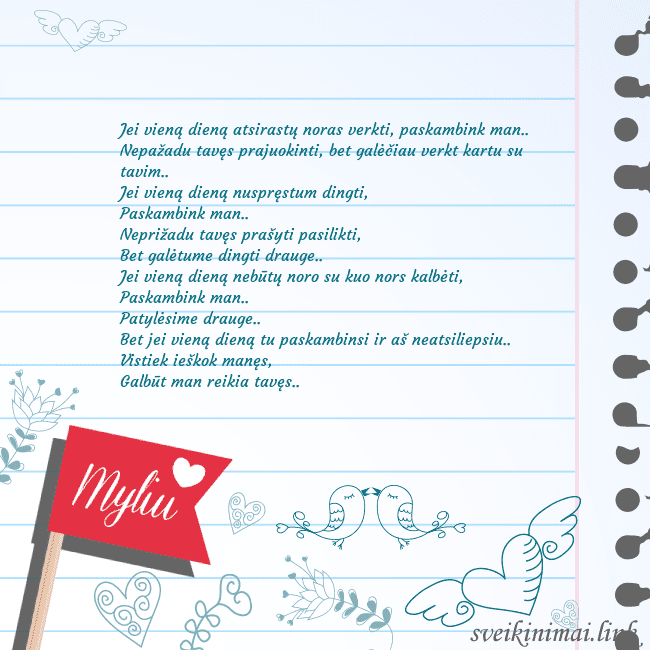 Jei vieną dieną atsirastų noras verkti, paskambink man..
Nepažadu tavęs prajuokinti, bet galėčiau verkt kartu su
tavim..
Jei vieną dieną nuspręstum dingti,
Paskambink man..
Neprižadu tavęs prašyti pasilikti,
Bet galėtume dingti drauge..
Jei vieną dieną nebūtų noro su kuo nors kalbėti,
Paskambink man..
Patylėsime drauge..
Bet jei vieną dieną tu paskambinsi ir aš neatsiliepsiu..
Vistiek ieškok manęs,
Galbūt man reikia tavęs..
Myliu
sveikinimai.link